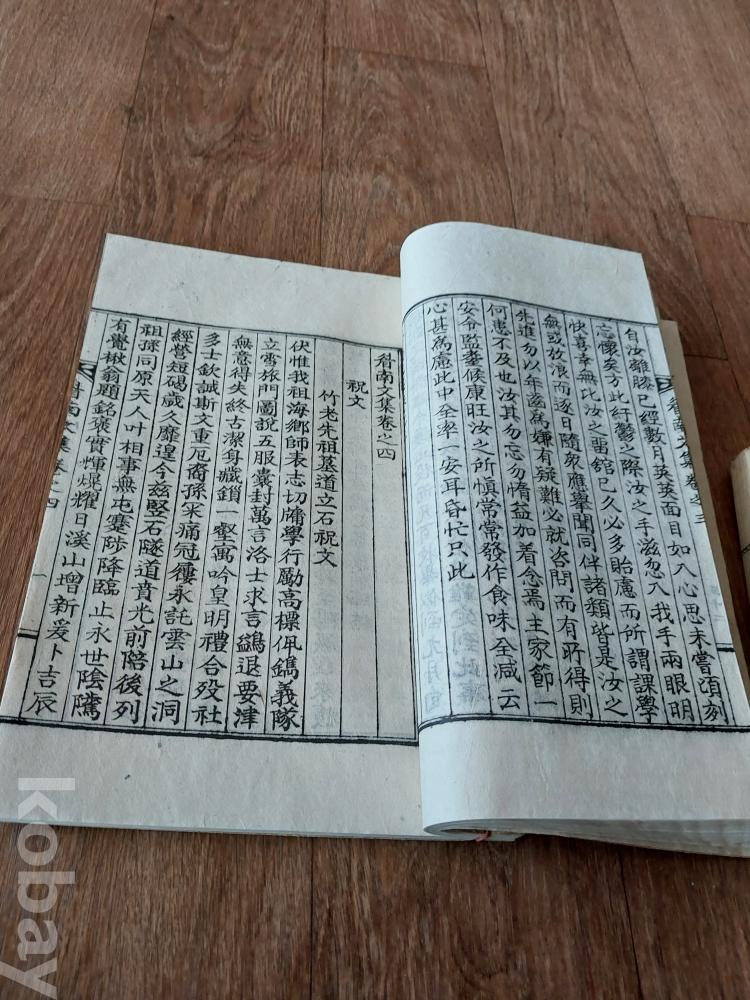 自汝離膝已經數月英英面目如入心思未嘗頃刻
忘懷矣方此紆鬱之際汝之手滋忽入我手兩眼明
快喜幸無比汝之留館已久必多貽慮而所謂課學
無或放浪而逐日隨衆應擧聞同伴諸類皆是汝之
先進勿以年滋爲嫌有疑難必就咨問而有所得則
何患不及也汝其勿忘勿惰益加着念焉主家節一
安令監臺候康旺汝之所愼常常發作食味全减云
心甚爲慮此中全率一安耳昏忙只此
南文集卷之三
南文集卷之四
祝文
竹老先祖墓道立石祝文
伏惟我祖海鄕師表志切牖學行勵高標佩鐫義隊
立雪旅門圖說五服囊封萬言洛士求言鷁退要津
無意得失終古潔身藏鎖一壑寓吟皇明禮合歿社
多士欽誠斯文重厄裔孫宋痛冠屨永託雲山之洞
經營短碣歲久靡遑今玆竪石隧道賁光前陪後列
祖孫同原天人叶相事無屯蹇陟降臨止永世陰騭
有覺楸翁題銘褒實輝爆耀日溪山增新爰卜吉辰
南文集卷之四
kobay